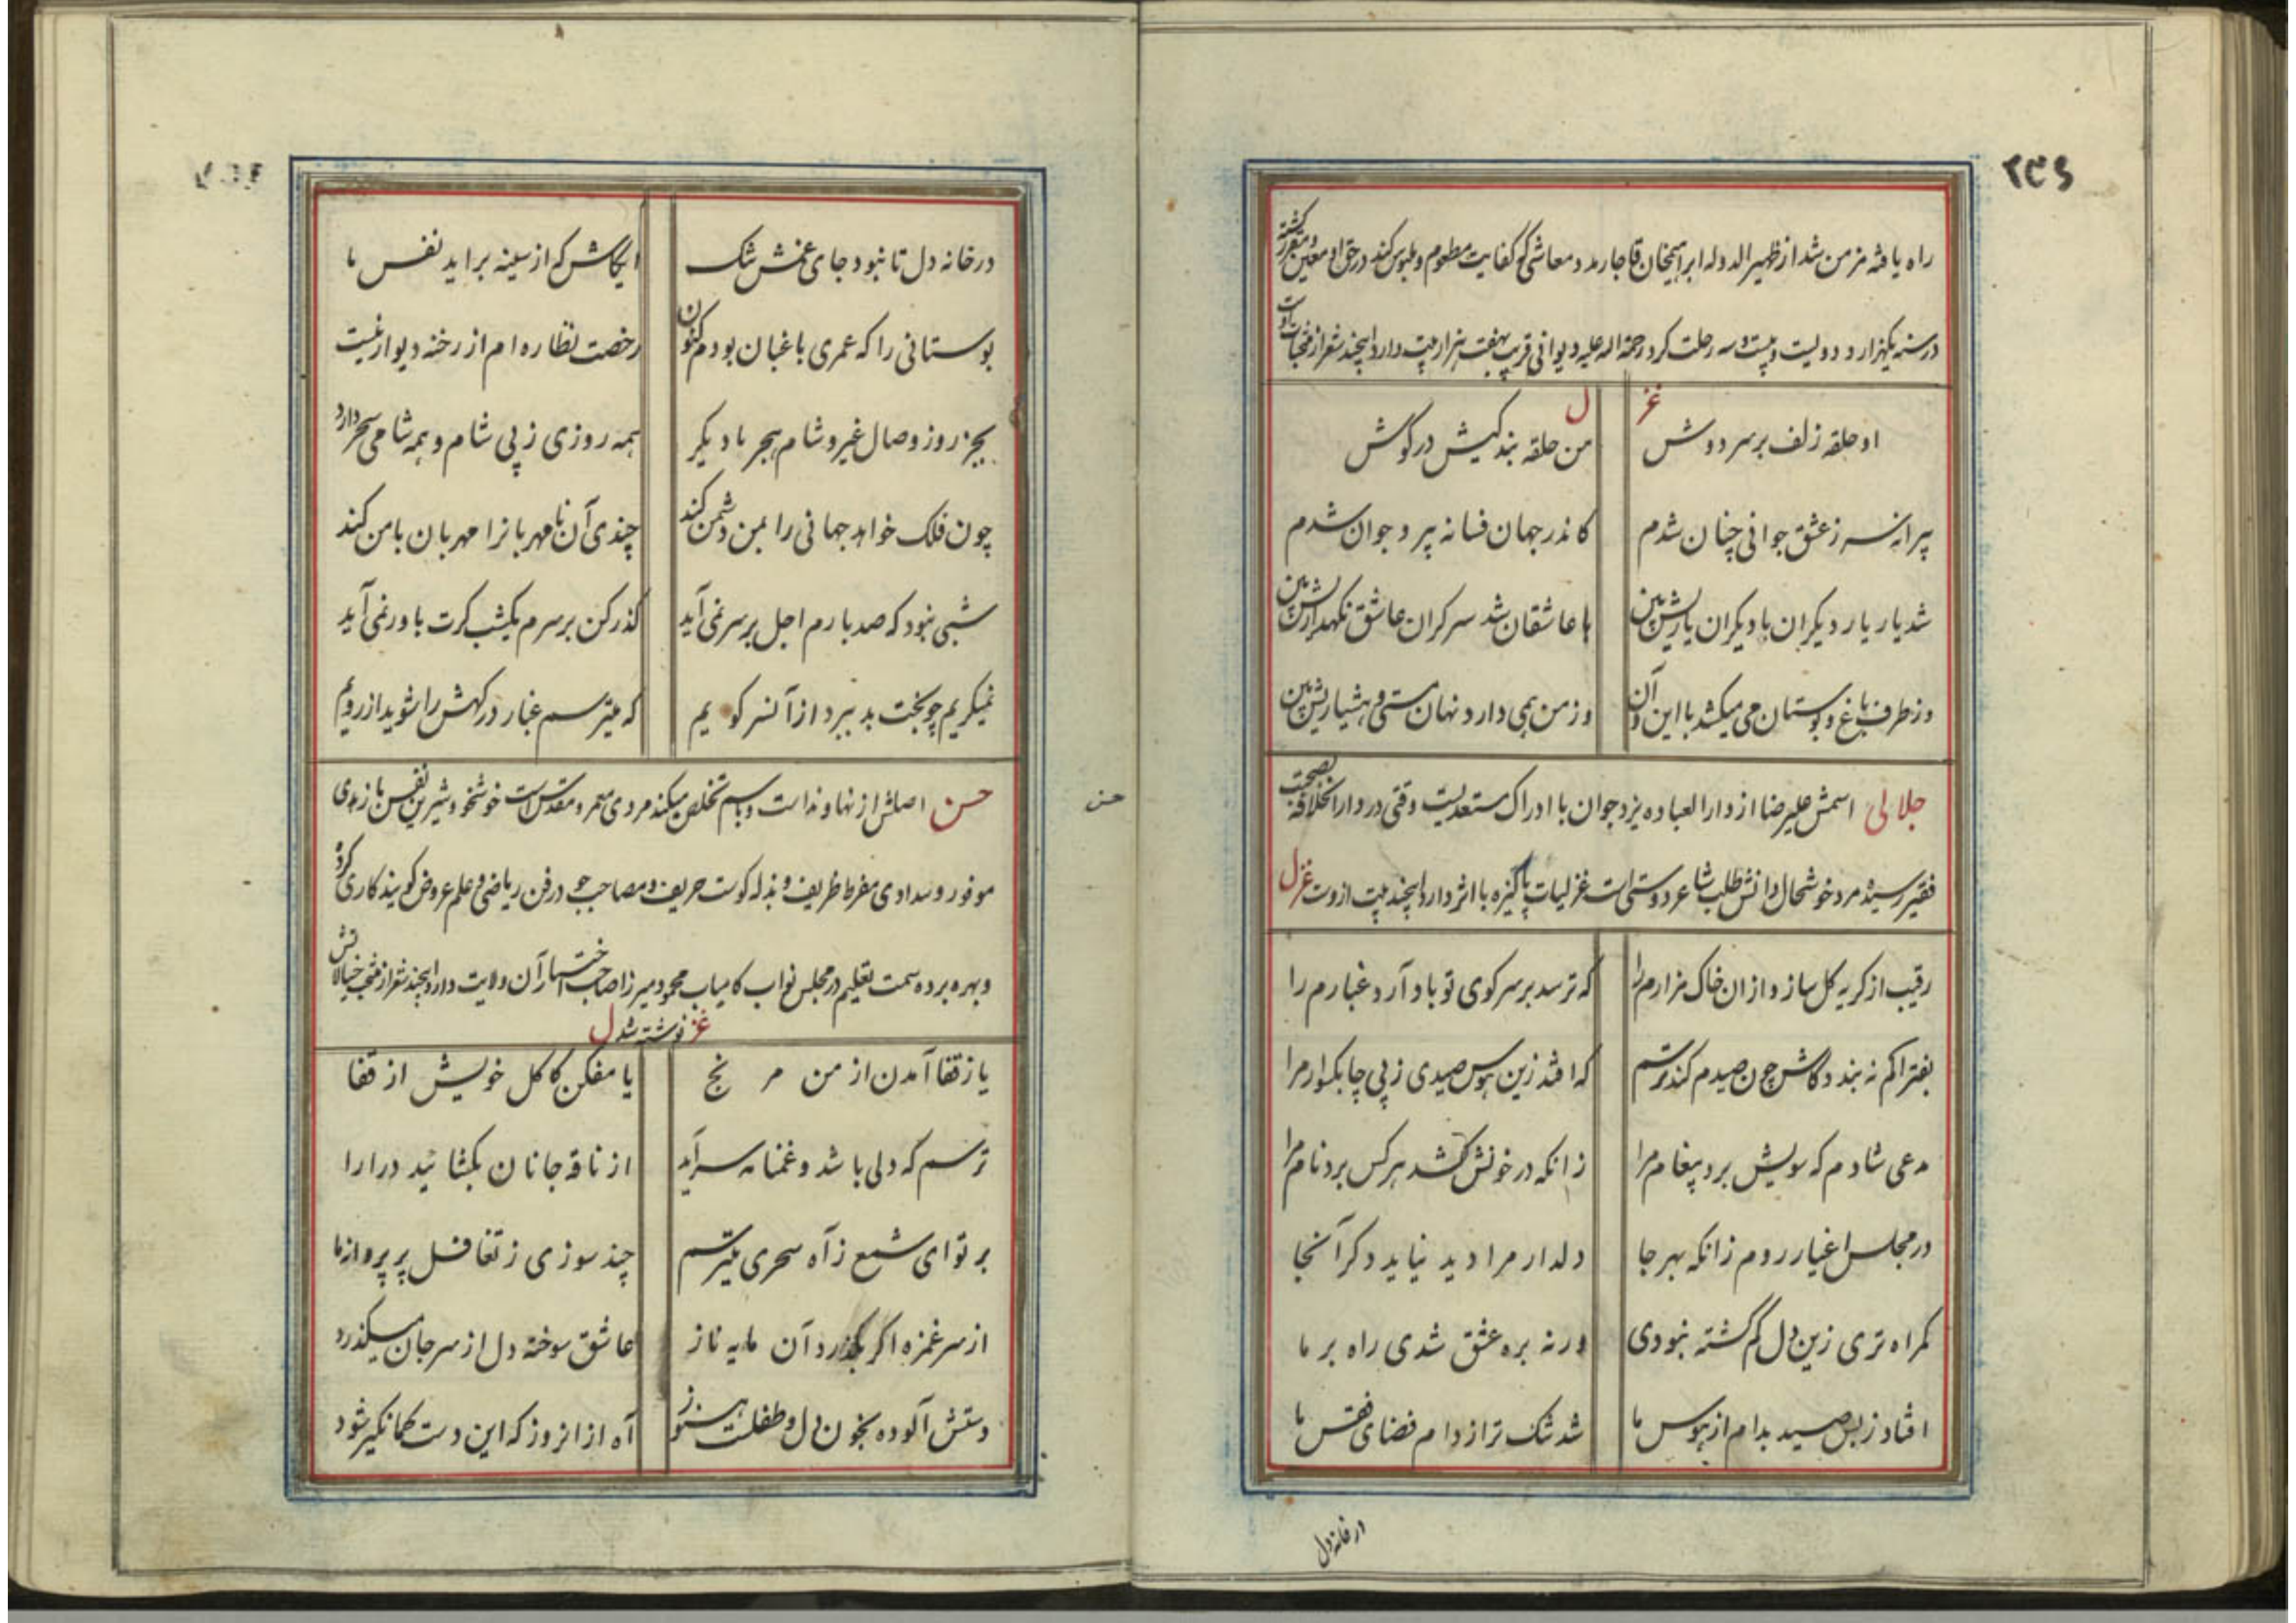 ۲۳۶
راه یافته مزمن شد از ظهیر الدوله ابراهیمخان قاجار مدد معاشی که کفایت مطعوم و ملبوس کند در حق او معین و مقرر گشته
در سنه یکهزار و دویست و بیست و سه رحلت کرد رحمة اله علیه دیوانی قریب بهفت هزار بیت دارد اینچند شعر از منتخبات اوست
غزل
او حلقه زلف بر سر دوش من حلقه بندکیش در کوش
پیرانه سر ز عشق جوانی چنان شدم کاندر جهان فسانه پیر و جوان شدم
شد یار یار دیکران با دیکران یاریش بین با عاشقان شد سرکران عاشق نکهداریش بین
وز طرف باغ و بوستان می میکشد با این و آن وز من همی دارد نهان مستی و هشیاریش بین
جلالی اسمش علیرضا از دار العباده یزد جوان با ادراک مستعدیست وقتی در دار الخلافه بصحبت
فقیر رسیده مرد خوشحال دانش طلب شاعر دوستی است غزلیات پاکیزه با اثر دارد اینچند بیت ازوست غزل
رقیب از کریه کل سازد از ان خاک مزارم را که ترسد بر سر کوی تو باد آرد غبارم را
بفتراکم نه بندد کاش چون صیدم کند ترسم که افتد زین هوس صیدی ز پی چابکسوارم را
مدعی شادم که سویش برد پیغام مرا زانکه در خونش کشد هر کس برد نام مرا
در مجلس اغیار روم زانکه بهر جا دلدار مرا دید نیاید دکر آنجا
کمراه تری زین دل کم گشته نبودی ورنه بره عشق شدی راه بر ما
افتاد ز بس صید بدام از هوس ما شد تنک تر از دام فضای قفس ما
در خانه دل
در خانه دل تا نبود جای غمش تنک ایکاش که از سینه براید نفس ما
بوستانی را که عمری باغبان بودم کنون رخصت نظاره ام از رخنه دیوار نیست
بجز روز وصال غیر و شام هجر ما دیکر همه روزی ز پی شام و همه شامی سحر دارد
چون فلک خواهد جهانی را بمن دشمن کند چندی آن نامهربانرا مهربان با من کند
شبی نبود که صد بارم اجل بر سر نمی آید کذر کن بر سرم یکشب کرت باور نمی آید
نمیکریم چو بخت بد ببرد از آن سر کویم که میترسم غبار درکهش را شوید از رویم
حسن
حسن اصلش از نهاوند است و باسم تخلص میکند مردی معمر و مقدس است خوشخو و شیرین نفس با زهدی
موفور و سدادی مفرط ظریف و بذله کوست حریف و مصاحب جو در فن ریاضی و علم عروض کویند کاری کرده
و بهره برده سمت تعلیم در مجلس نواب کامیاب محمود میرزا صاحب اختیار آن ولایت دارد اینچند شعر از منتخب خیالاتش
نوشته شد غزل
یا ز قفا آمدن از من مرنج یا مفکن کاکل خویش از قفا
ترسم که دلی باشد و غمنامه سراید از ناقه جانان بکشائید درا را
بر تو ای شمع ز آه سحری میترسم چند سوزی ز تغافل پر پروانه ما
از سر غمزه اکر بگذرد آن مایه ناز عاشق سوخته دل از سر جان میکذرد
دستش آلوده بخون دل و طفلست هنوز آه از انروز که این دست کمانکیر شود